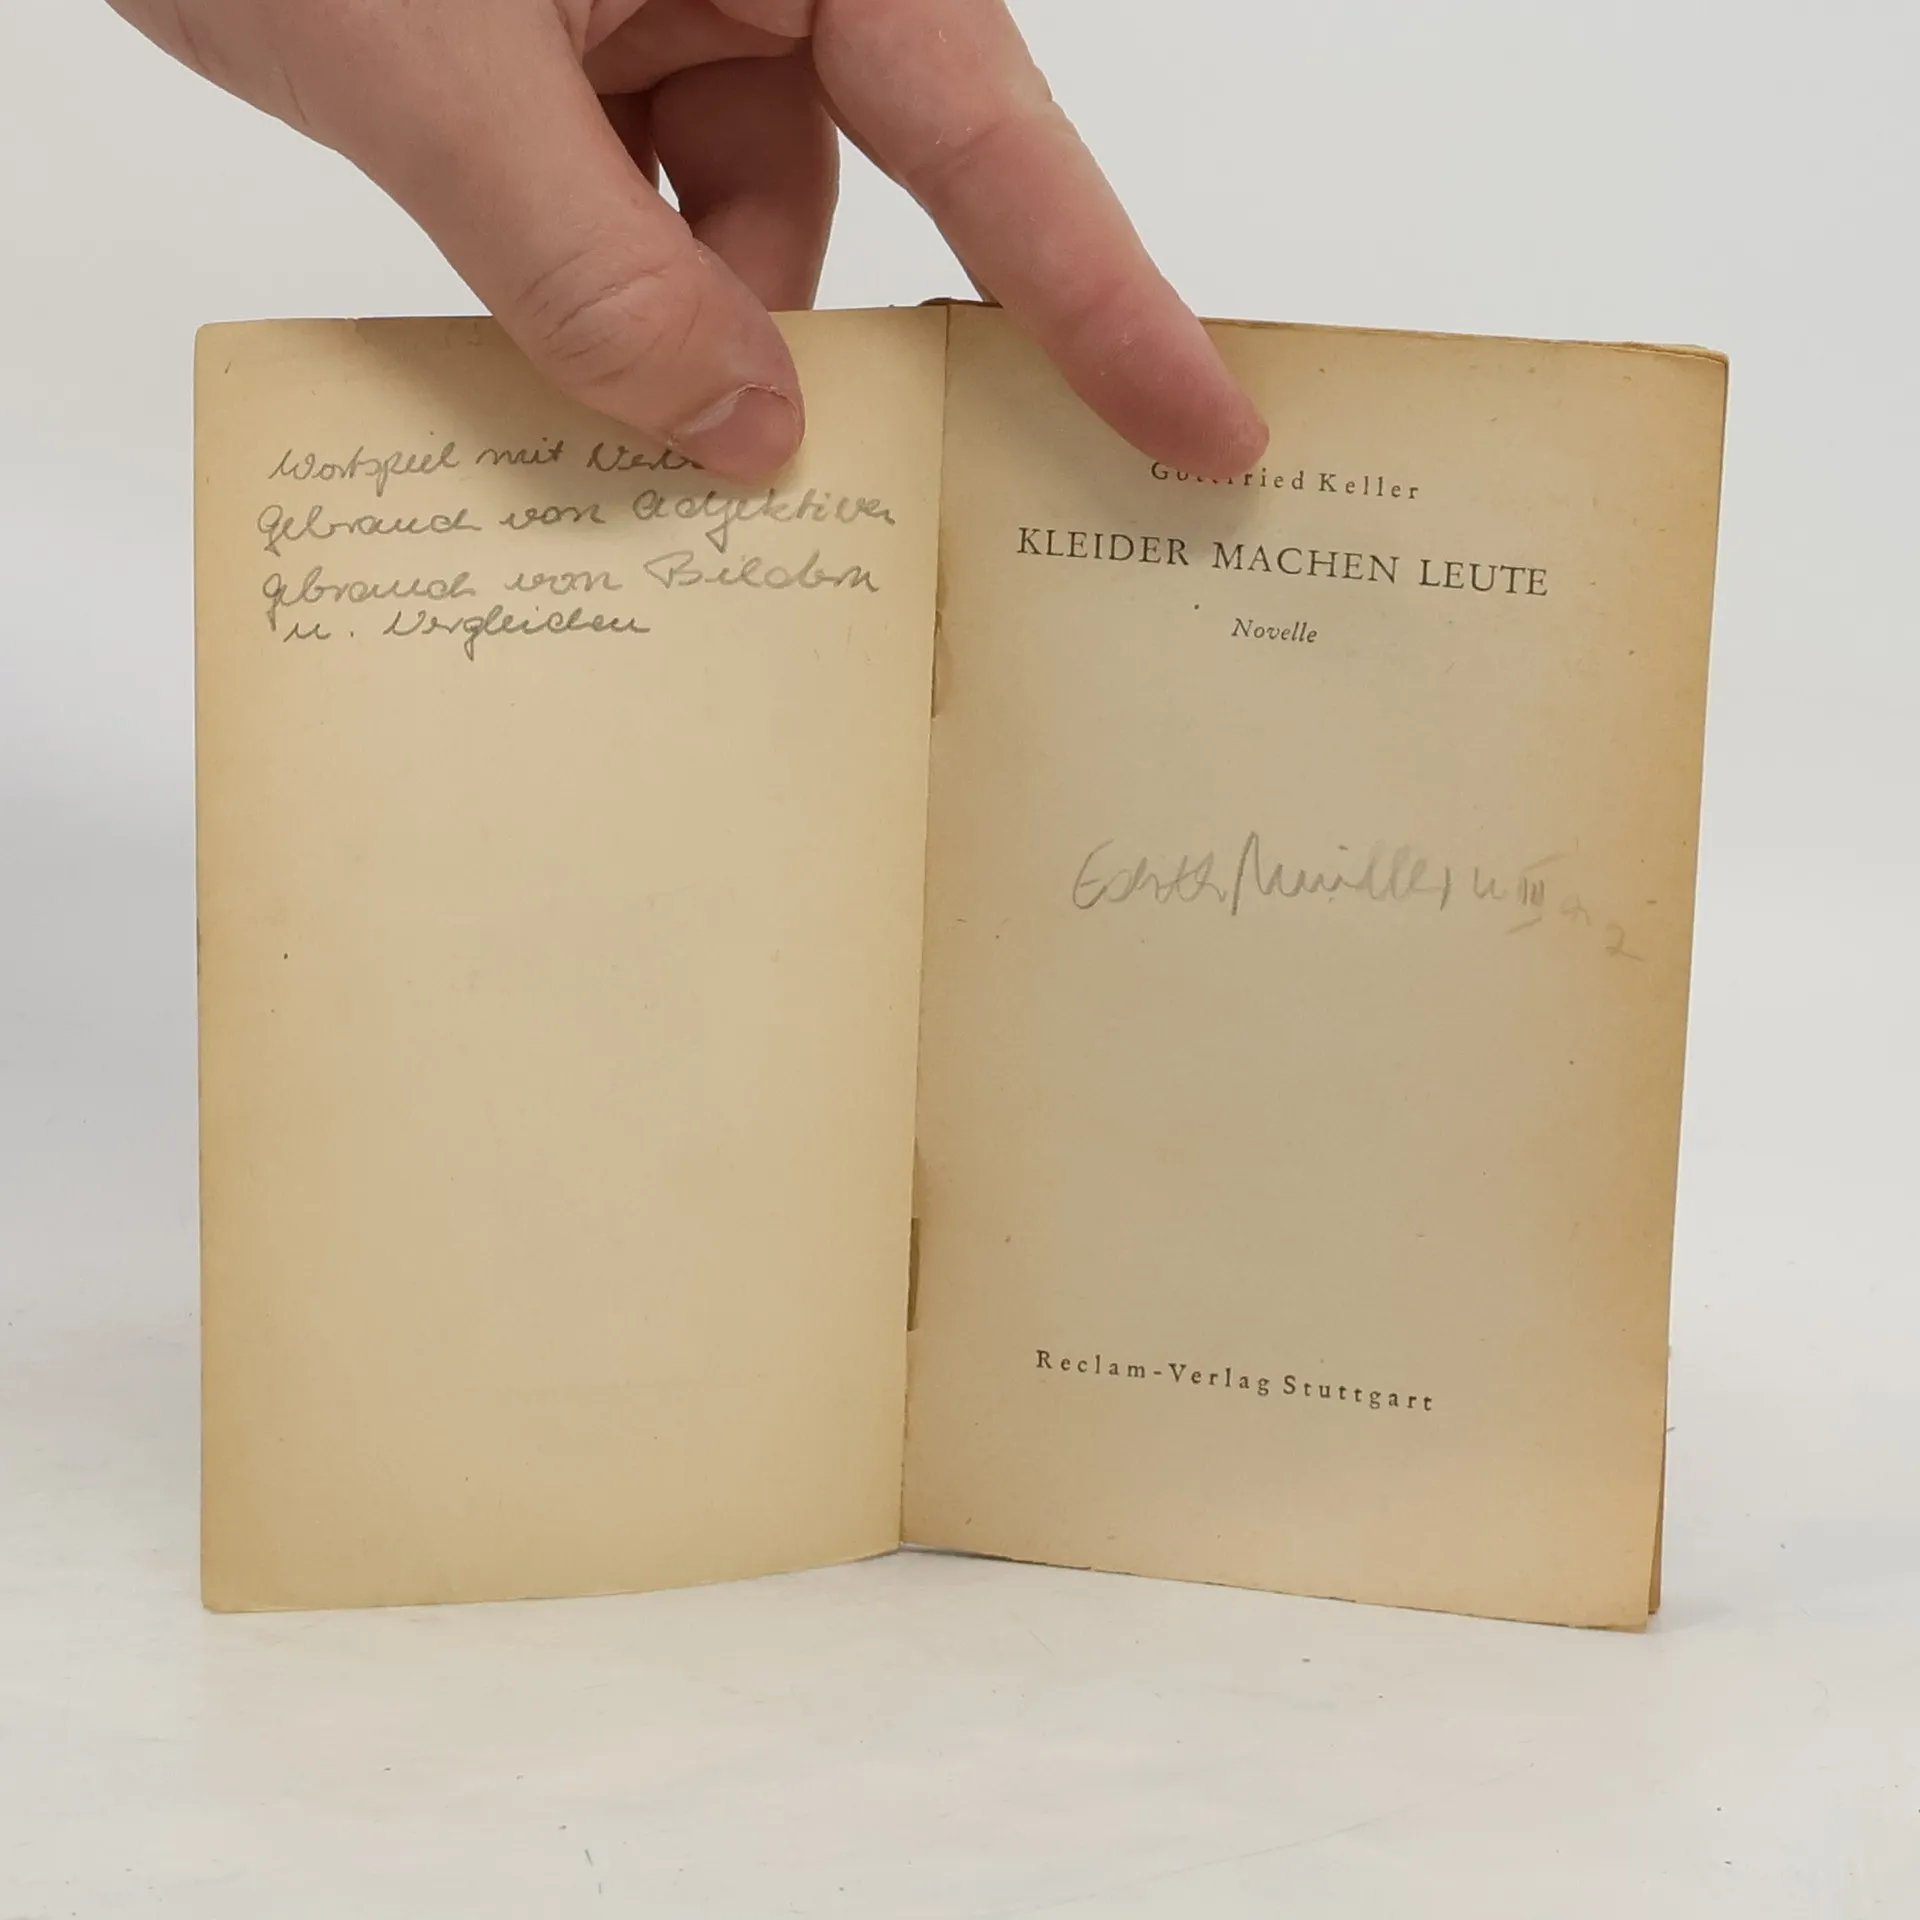 Wortspiel mit
Gebrauch von Adjektiven
Gebrauch von Bildern
u. Vergleichen
Gottfried Keller
KLEIDER MACHEN LEUTE
Novelle
Edith Müller U III a 2
Reclam-Verlag Stuttgart